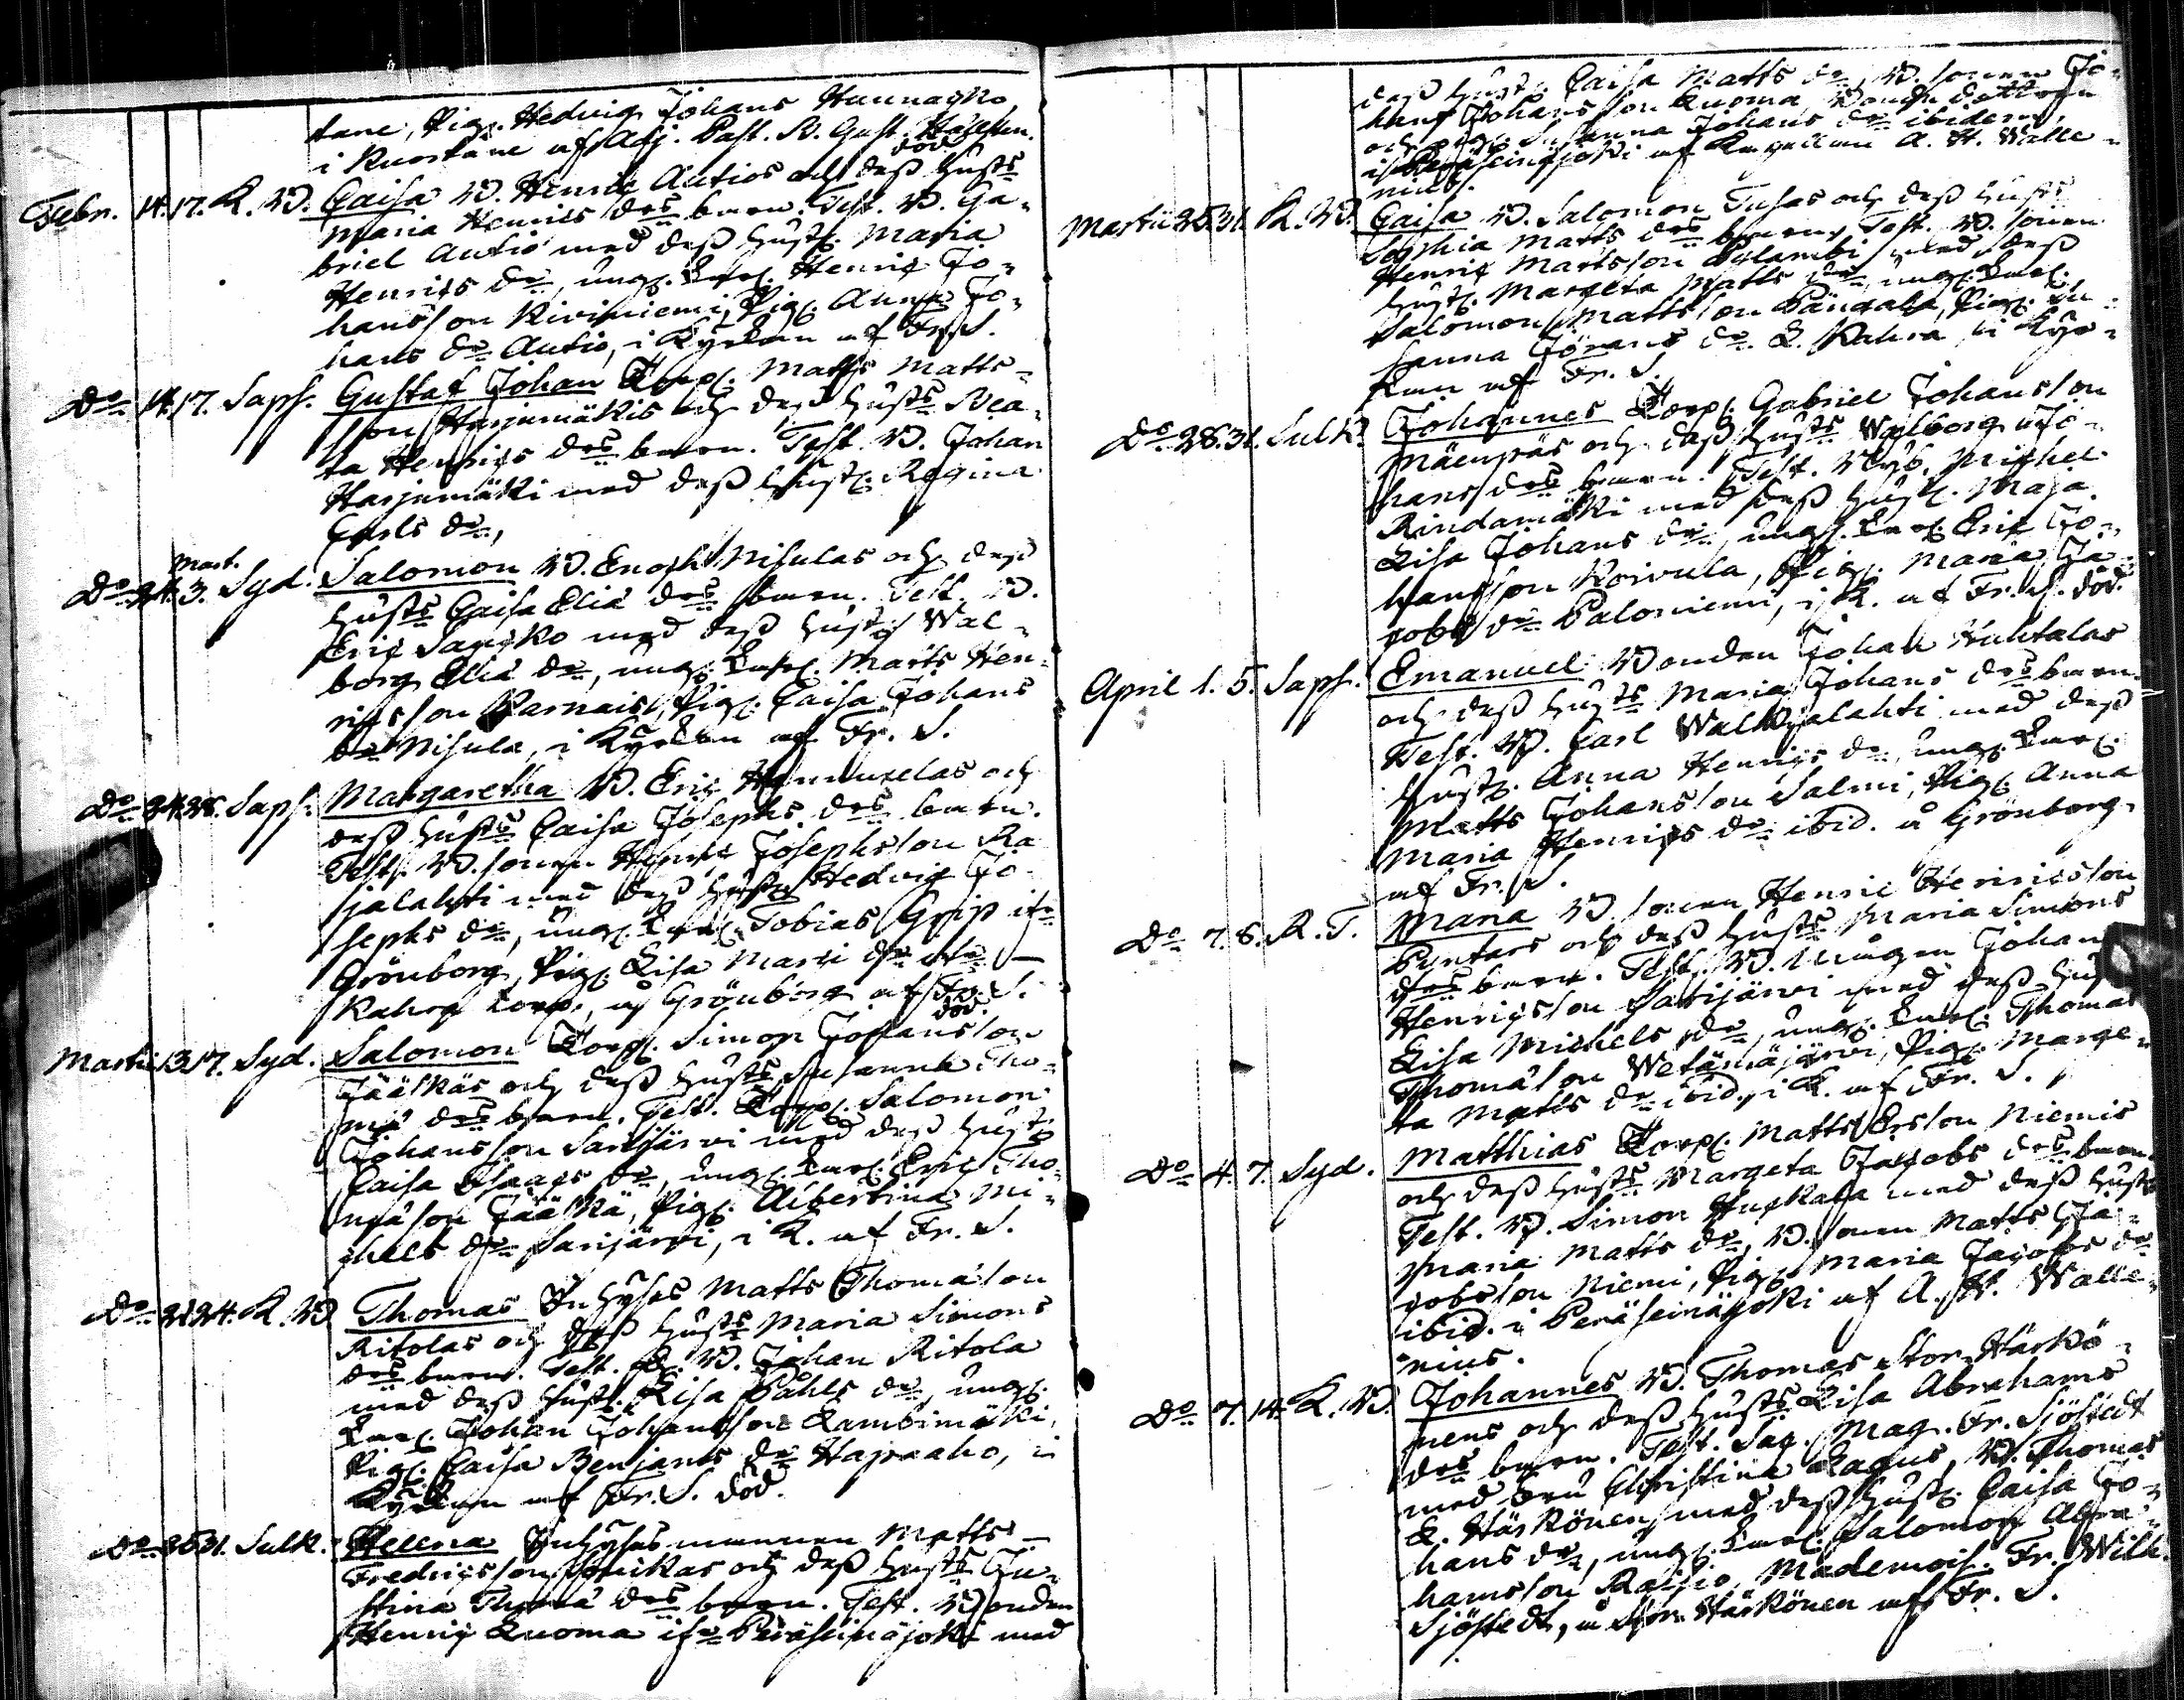 tane, Pig. Hedvig Johans Hunnagko,
i Kuortane af Adj. Past. B. Gust.
död
Febr. 14. 17. K. W. Caisa W. Henric Autios och dess hust:s
Maria Henrics d:rs barn. Test. W. Ga-
briel Autio med dess hust. Maria
Henrics d:r, ung. Karl. Henric Jo-
hansson Kiviniemi, Pig. Anna Jo-
hans d:r Autio, i Kyrkan af Fr. S.
D:o 14. 17. Saps. Gustaf Johan Torp. Matts Matts-
son Harjumäkis och dess hust:s Bea-
ta Henrics d:rs barn. Test. W. Johan
Harjumäki med dess hust. Regina
Carls d:r,
Mart.
D:o 24. 3. Syd. Salomon W. Enoch Nisulas och dess
hust:s Caisa Eliæ d:rs barn. Test. W.
Eric Sangko med dess hust. Wal-
borg Eliæ d:r, ung. Karl. Matts Hen-
ricsson Parnais, Pig. Caisa Johans
d:r Nisula, i Kyrkan af Fr. S.
D:o 24. 28. Saps. Margaretha W. Eric Hannuxelas och
dess hust:s Caisa Josephs d:rs barn.
Test. W. sonen Henric Josephsson Ra
jalahti med dess hust. Hedvig Jo-
sephs d:r, ung. Karl. Tobias Grip
Grönborg, Pig. Lisa Matts d:r
Kahra torp., å Grönborg af Fr. S.
död.
Martii 13. 17. Syd. Salomon Torp. Simon Johansson
Jääskäs och dess hust:s Susanna Tho-
mæ d:rs barn. Test. Torp. Salomon
Johansson Sarijärvi med dess hust.
Caisa Isaacs d:r, ung. Karl. Eric Tho-
mæson Jääskä, Pig. Albertina Mi-
chels d:r Sarijärvi, i K. af Fr. S.
D:o 21. 24. K. W. Thomas Inhyses Matts Thomæson
Ritolas och dess hust:s Maria Simons
d:rs barn. Test. W. Johan Ritola
med dess hust. Lisa Påhls d:r, ung.
Karl. Johan Johansson Lambimäki,
Pig. Caisa Benjams d:r Hapaaho, i
Kyrkan af Fr. S. död.
D:o 26. 31. Sulk. Helena Inhyses mannen Matts
Fredricsson och dess hust:s Ju-
stina Thomæ d:rs barn. Test. Bonden
Henric Luoma Peräseinäjoki med
dess hust. Caisa Matts d:r, W. sonen Jo-
hans Johansson Luoma, Bonde dottren
och pig. Susanna Johans d:r ibidem,
i Peräseinäjoki af Kapellan A. H. Walle-
nius.
Martii 25. 31. K. W. Caisa W. Salomon Tuhas och dess hust:s
Sophia Matts d:rs barn, Test. W. sonen
Henric Mattsson Sylambi med dess
hust. Margeta Matts d:r, ung. Karl.
Salomon Mattsson Pängala, Pig. Su-
sanna Jörans d:r L. Kahra, i Kyr-
kan af Fr. S.
D:o 28. 31. Sulk. Johannes Torp. Gabriel Johansson
Mäenpäs och dess hust:s Walborg Jo-
hans d:rs barn. Test. Michel
Rindamäki med dess hust. Maja
Lisa Johans d:r, ung. Karl. Eric Jo-
hansson Koivula, Pig. Maria Ja-
cobs d:r Paloniemi, i K. af Fr. S. död.
April 1. 5. Saps. Emanuel Bonden Johan Huhtalas
och dess hust:s Maria Johans d:rs barn.
Test. W. Carl Walkjalahti med dess
hust. Anna Henrics d:r, ung. Karl.
Matts Johansson Salmi, Pig. Anna
Maria Henrics d:r ibid. å Grönborg
af Fr. S.
D:o 7. 8. K. T. Maria W. sonen Henric Henricsson
Pentars och dess hust:s Maria Simons
d:rs barn. Test. W. Mågen Johan
Henricsson Satijärvi med dess hust
Lisa Michels d:r, ung. Karl. Thomas
Thomæson Wetämäjärvi, Pig. Marge-
ta Matts d:r ibid, i K. af Fr. S.
D:o 4. 7. Syd. Matthias Torp. Matts Ersson Niemis
och dess hust:s Margeta Jacobs d:rs barn
Test. W. Simon Huhkala med dess hust.
Maria Matts d:r, W. sonen Matts Ja-
cobsson Niemi, Pig. Maria Jacobs d:r
ibid. i Peräseinäjoki af A. H. Walle-
nius.
D:o 7. 14. K. W. Johannes W. Thomas Stor-Härkö-
nens och dess hust:s Lisa Abrahams
d:rs barn. Test. Sac. Mag. Fr. Sjöstedt
med Fru Christina Lagus, W. Thomas
L. Härkönen med dess hust. Caisa Jo-
hans d:r, ung. Karl. Salomon Abra-
hamsson Raisio, Mademois. Fr. Wilh.
Sjöstedt, å Stor Härkönen af Fr. S.